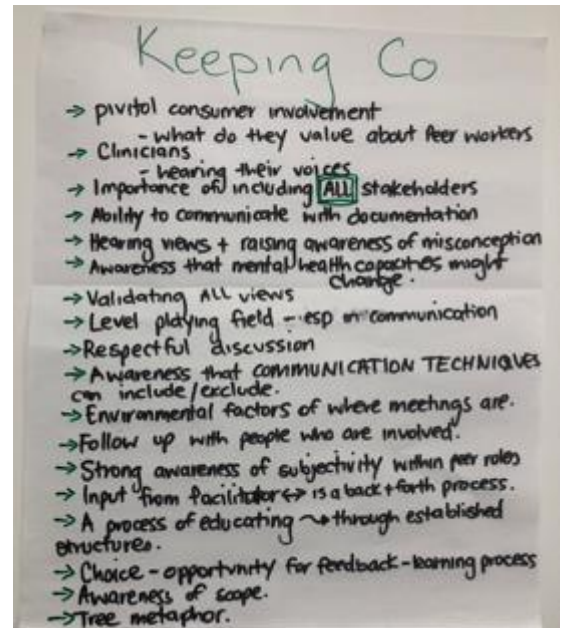 Keeping Co
→ pivitol consumer involvement
- what do they value about Peer workers
→ Clinicians
- hearing their voices
→ Importance of including ALL stakeholders
→ Ability to communicate with documentation
→ Hearing views + raising awareness of misconception
→ Awareness that mental health capacities might
change.
→ Validating ALL views
→ Level playing field - esp in communication
→ Respectful discussion
→ Awareness that COMMUNICATION TECHNIQUES
can include/exclude.
→ Environmental factors of where meetings are.
→ Follow up with people who are involved.
→ Strong awareness of subjectivity within peer roles
→ Input from facilitator ↔ is a back + forth process.
→ A process of educating ⇝ through established
structures.
→ Choice - opportunity for feedback - learning process
→ Awareness of scope.
→ Tree metaphor.